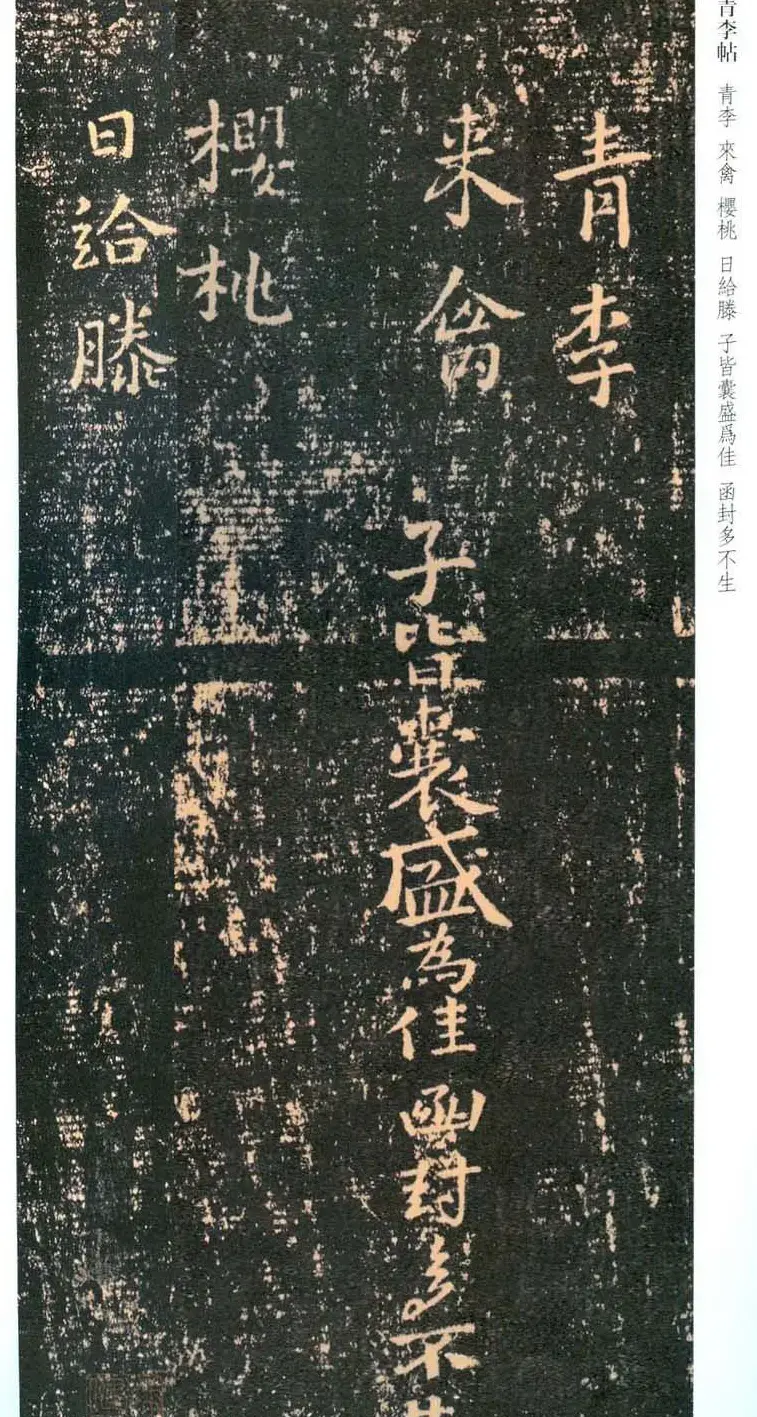 青李帖 青李 來禽 櫻桃 日給滕 子皆囊盛爲佳 函封多不生
青李
来禽
子皆囊盛為佳函封多不生
櫻桃
日給滕